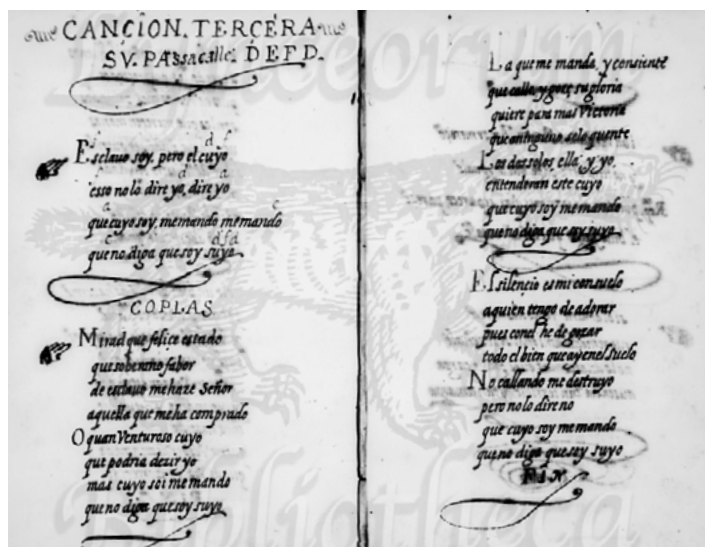 CANCION. TERCERA
SV. PASsacalle. D E F D.
d f
Esclauo soy, pero el cuyo
d a
esso no lo dire yo, dire yo
a c
que cuyo soy, me mando me mando
c d f d
que no diga que soy suyo
COPLAS
Mirad que felice estado
que soberano fabor
de esclauo me haze Señor
aquella que me ha comprado
O quan Venturoso cuyo
que podria dezir yo
mas cuyo soi me mando
que no diga que soy suyo
La que me manda, y consiente
que calle, y goze su gloria
quiere para mas Victoria
que a ninguno se lo quente
Los dos solos, ella, y yo
entenderan este cuyo
que cuyo soy me mando
que no diga que soy suyo
El silencio es mi consuelo
a quien tengo de adorar
pues con el he de gozar
todo el bien que ay en el suelo
No callando me destruyo
pero no lo dire no
que cuyo soy me mando
que no diga que soy suyo
FIN
Lynceorum
Bibliotheca